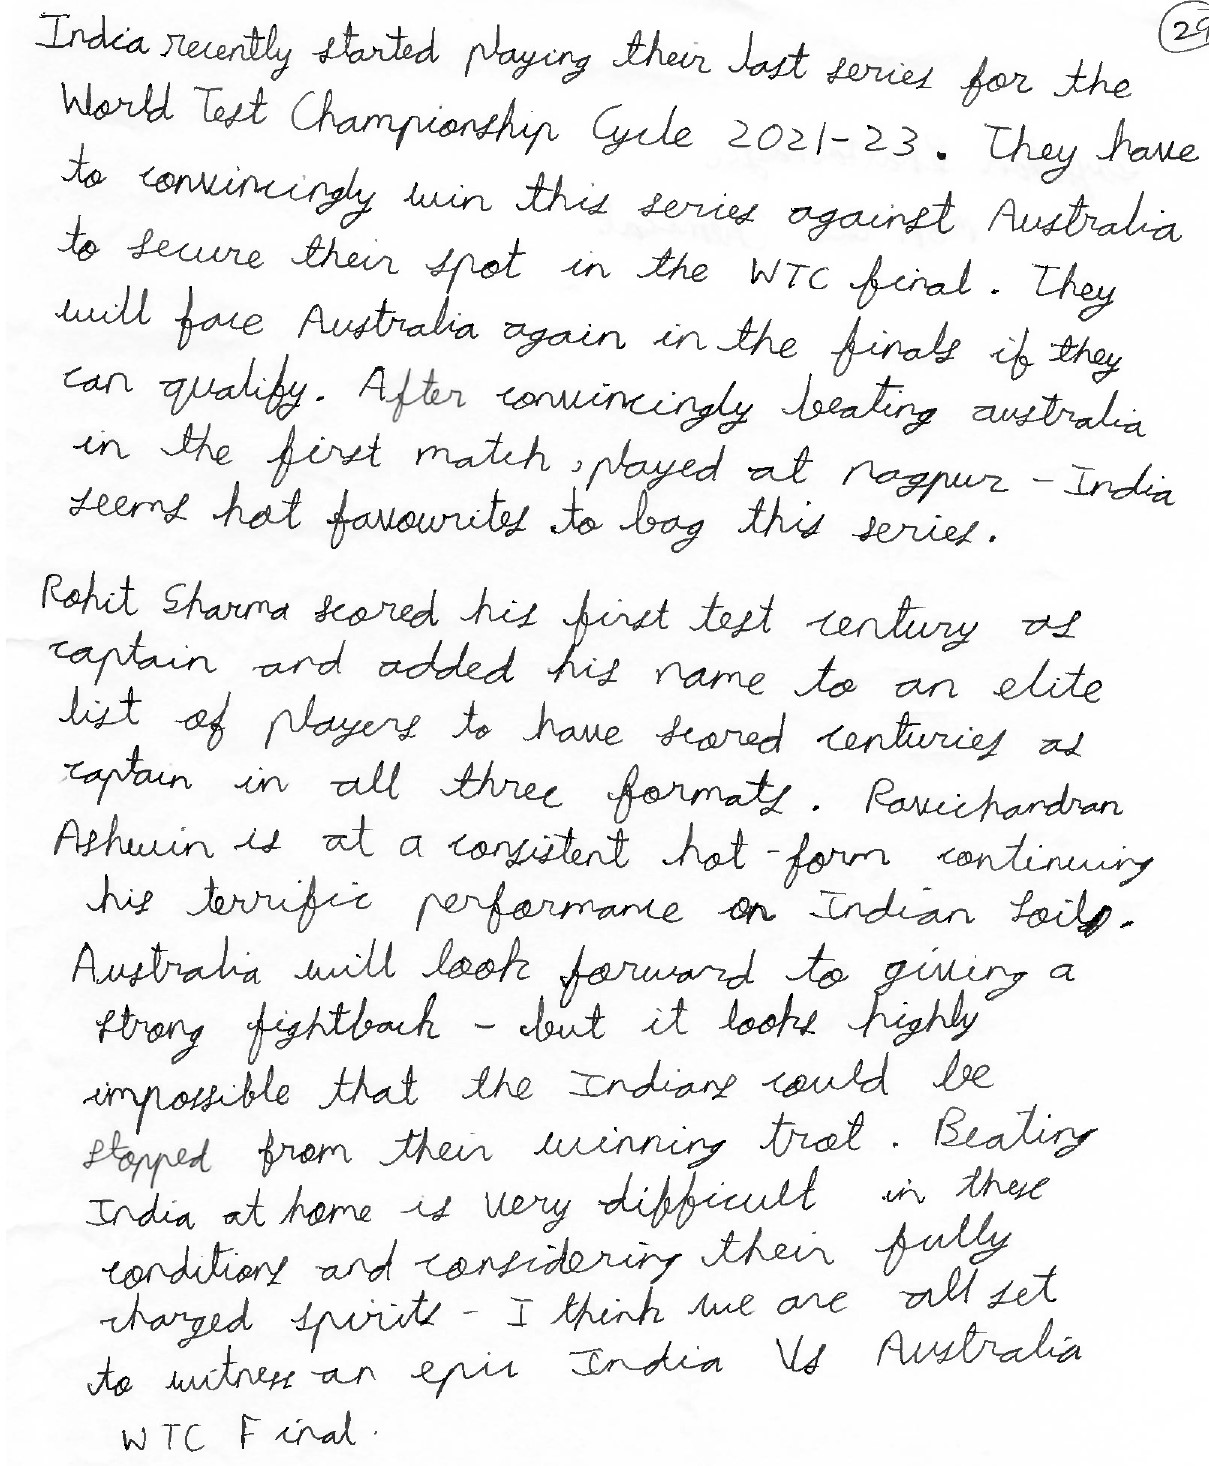 29
India recently started playing their last series for the
World Test Championship Cycle 2021-23. They have
to convincingly win this series against Australia
to secure their spot in the WTC final. They
will face Australia again in the finals if they
can qualify. After convincingly beating australia
in the first match, played at nagpur - India
seems hot favourites to bag this series.
Rohit Sharma scored his first test century as
captain and added his name to an elite
list of players to have scored centuries as
captain in all three formats. Ravichandran
Ashwin is at a consistent hot-form continuing
his terrific performance on Indian soil.
Australia will look forward to giving a
strong fightback - but it looks highly
impossible that the Indians could be
stopped from their winning trot. Beating
India at home is very difficult in these
conditions and considering their fully
charged spirits - I think we are all set
to witness an epic India Vs Australia
WTC Final.